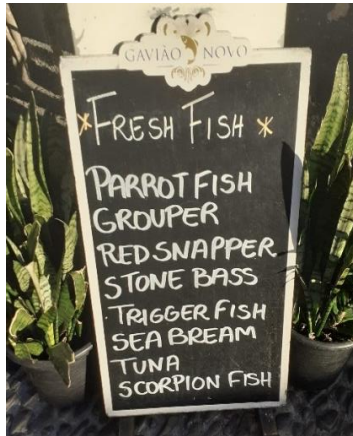 GAVIÃO NOVO
* FRESH FISH *
PARROT FISH
GROUPER
RED SNAPPER
STONE BASS
TRIGGER FISH
SEA BREAM
TUNA
SCORPION FISH